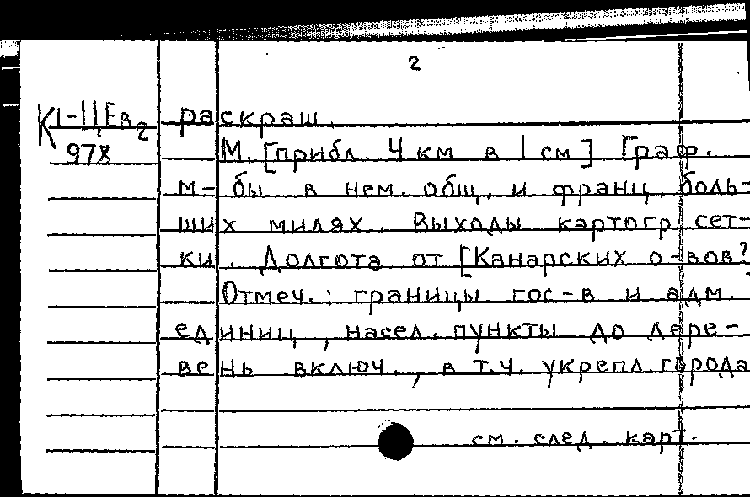 2
К I-IIЕв2 раскраш.
97х М. [прибл 4 км в 1 см] Граф.
м-бы в нем. общ. и франц боль-
ших милях. Выходы картогр сет-
ки. Долгота от [Канарских о-вов?
Отмеч.: границы гос-в и адм.
единиц, насел. пункты до дере-
вень включ., в т.ч. укрепл. города
см. след. карт.